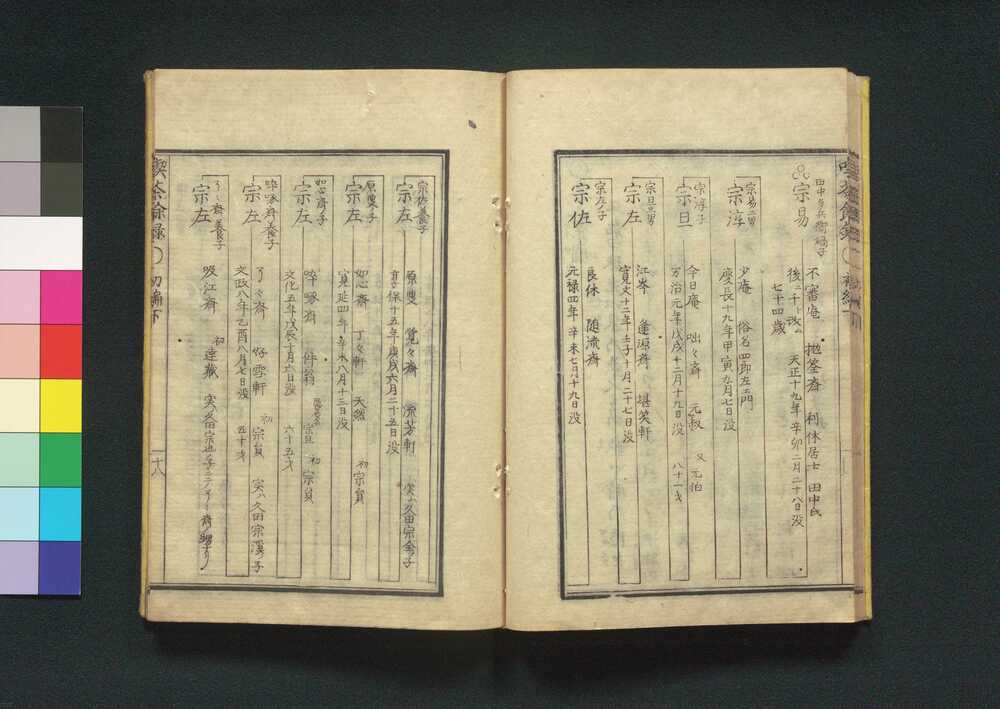 田中与兵衛嫡子
宗易
不審庵 抛筌斎 利休居士 田中氏
後ニ千ト改ム 天正十九年辛卯二月二十八日没
七十四歳
宗易二男
宗淳
少庵 俗名四郎左衛門
慶長十九年甲寅九月七日没
宗淳子
宗旦
今日庵 咄々斎 元叔 又元伯
万治元年戊戌十二月十九日没 八十一才
宗旦三男
宗左
江岑 逢源斎 堪笑軒
寛文十二年壬子十月二十七日没
宗左子
宗佐
良休 随流斎
元禄四年辛未七月十九日没
宗佐養子
宗左
原叟 覚々斎 流芳軒 実ハ久田宗全ノ子
享保十五年庚戌六月二十五日没
原叟子
宗左
如心斎 丁々軒 天然 初宗員
寛延四年辛未八月十三日没
如心斎子
宗左
啐啄斎 件翁 宗旦 初宗員
文化五年戊辰十月六日没 六十五才
啐啄斎養子
宗左
了々斎 好雪軒 初宗員 実ハ久田宗溪ノ子
文政八年乙酉八月七日没 五十才
了々斎養子
宗左
吸江斎 初達蔵 実ハ久田宗也ノ子ニテ了々斎ノ甥ナリ
喫茶余録
初編下
十八